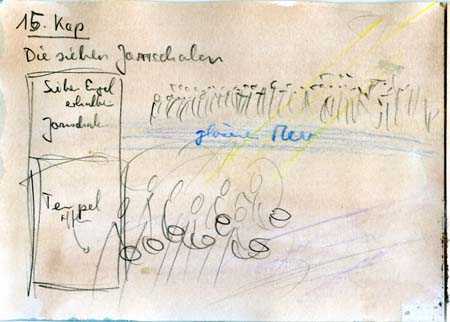 15. Kap
Die sieben Zornschalen
Sieben Engel
erhalten
Meer
Tempel